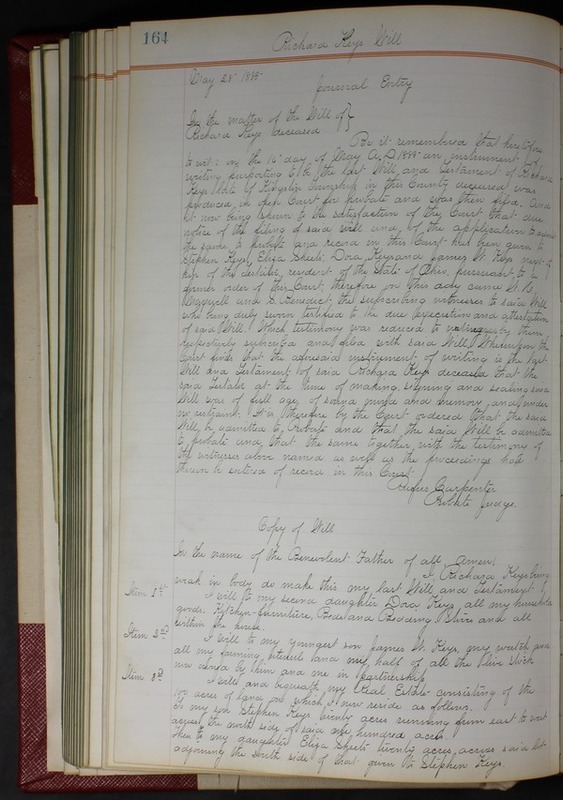 164
Richard Keys Will
May 28 1888
Journal Entry
In the matter of the Will of }
Richard Keys deceased
Be it remembered that heretofore
to wit: on the day of May A.D. 1888 an instrument of
writing purporting to be the last Will and Testament of Richard
Keys late of Township in this County deceased was
produced in open Court for probate and was then filed. And
it now being shown to the satisfaction of the Court that due
notice of the filing of said will and of the application to admit
the same to probate and record in this Court has been given to
Stephen Keys, Eliza Sheets, Dora Keys and James W. Keys next of
kin of the testator, resident of the State of Ohio, pursuant to a
former order of this Court; therefore on this day came
and S. Benedict, the subscribing witnesses to said Will
who being duly sworn testified to the due execution and attestation
of said Will. Which testimony was reduced to writing by them
respectively subscribed and filed with said Will. Whereupon the
Court finds that the aforesaid instrument of writing is the last
Will and Testament of said Richard Keys deceased that the
said Testator at the time of making, signing and sealing said
Will was of full age of sound mind and memory, and under
no restraint. It is therefore by the Court ordered that the said
Will be admitted to Probate and that the said Will be admitted
to probate and that the same together with the testimony of
the witnesses above named as well as the proceedings had
therein be entered of record in this Court.
Rufus Carpenter
Probate Judge.
Copy of Will
In the name of the Benevolent Father of all Amen:
I, Richard Keys being
weak in body do make this my last Will and Testament
Item 1st I will to my second daughter Dora Keys, all my household
goods. Kitchen furniture, Beds and Bedding, and all
within the house.
Item 2nd I will to my youngest son James W. Keys, my watch and
all my farming utensils and my half of all the live stock
now owned by him and me in partnership.
Item 3rd I will and bequeath my Real Estate consisting of the
100 acres of land on which I now reside as follows.
To my son Stephen Keys twenty acres running from east to west
across the north side of said one hundred acres
then to my daughter Eliza Sheets twenty acres across said lot
adjoining the south side of that given to Stephen Keys.